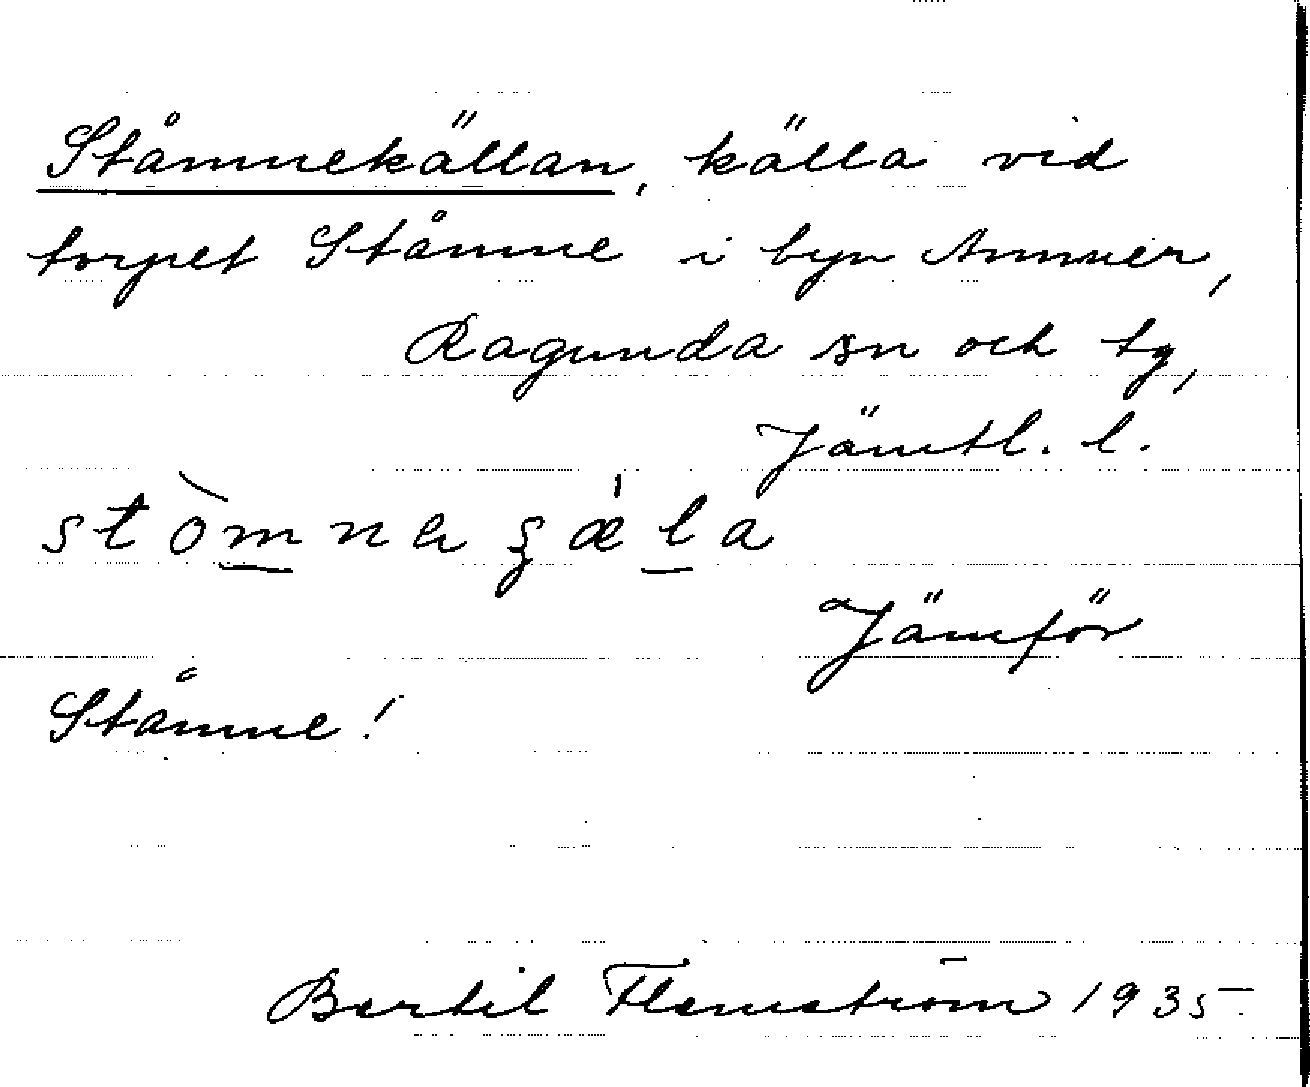 Ståmnekällan, källa vid
torpet Ståmne i byn Ammer,
Ragunda sn och tg,
Jämtl. l.
Jämför
Ståmne!
Bertil Flemström 1935.